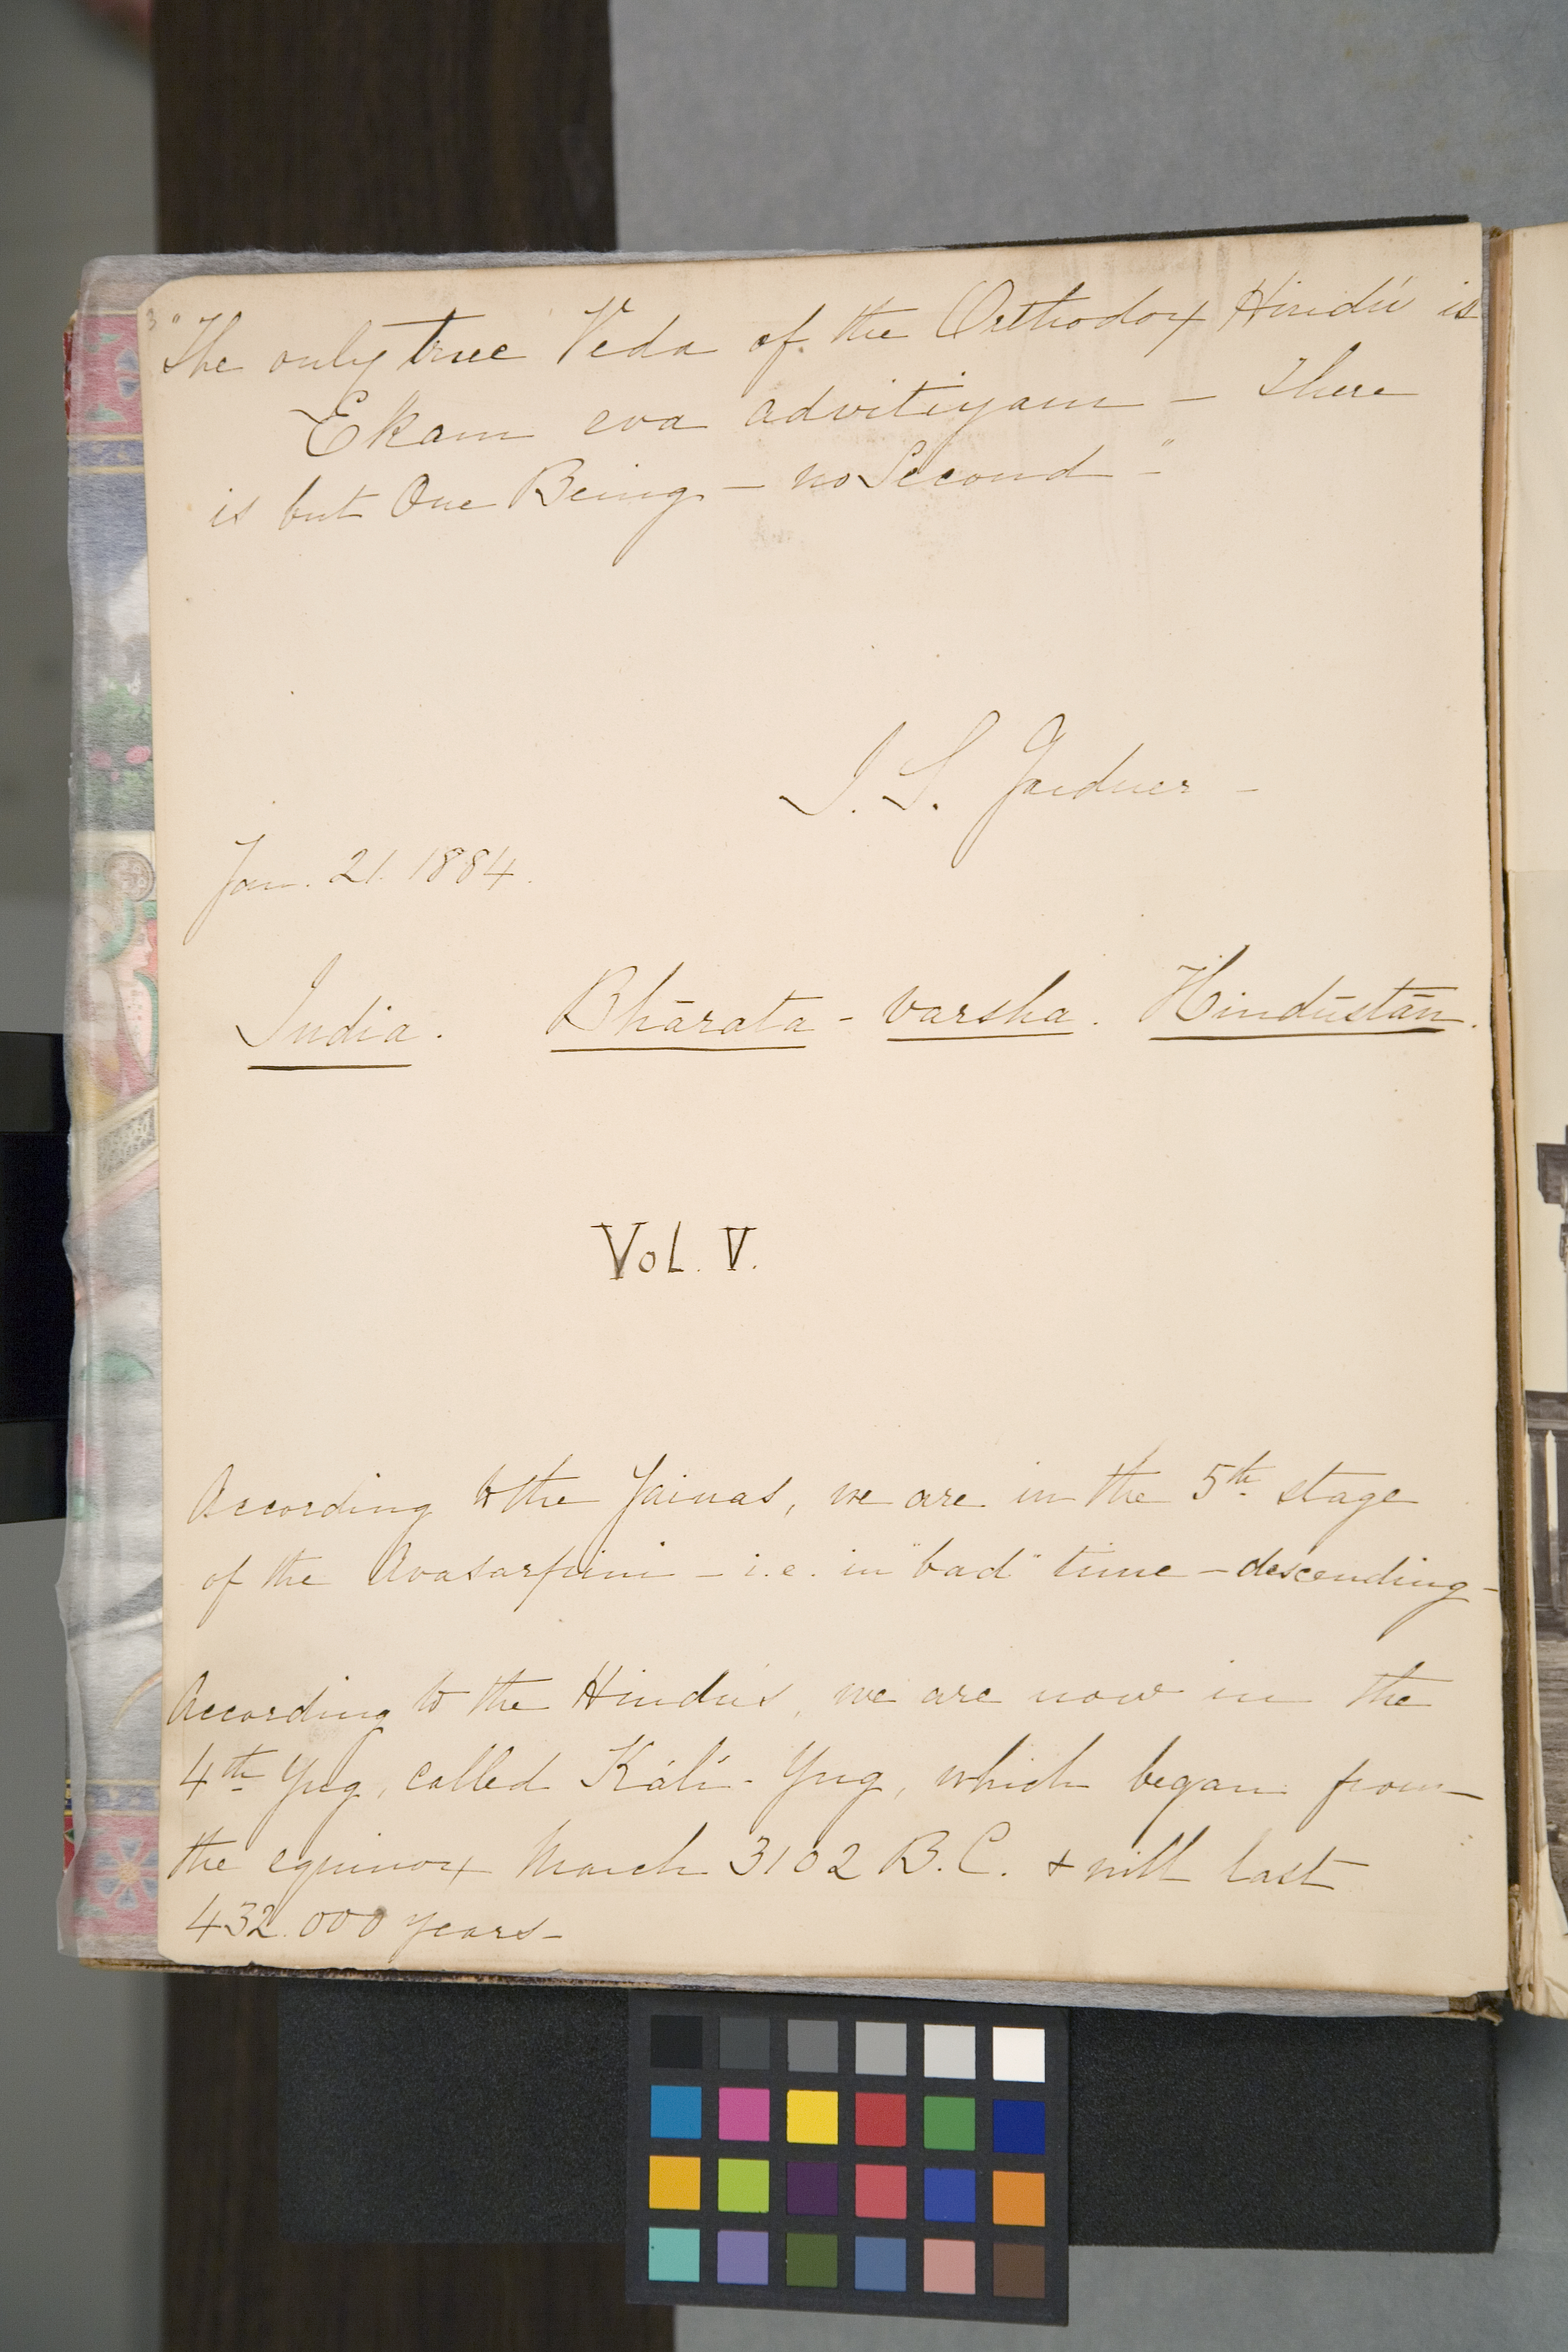 "The only true Veda of the Orthodox Hindú is
Ekam eva advitiyam – There
is but One Being – no Second –"
I. S. Gardner –
Jan. 21. 1884.
India. Bhārata - varsha. Hindūstān.
Vol. V.
According to the Jainas, we are in the 5th stage
of the Avasarpini – i.e. in "bad" time – descending –
According to the Hindús, we are now in the
4th Yug, called Káli - Yug, which began from
the equinox March 3102 B.C. & will last
432.000 years –